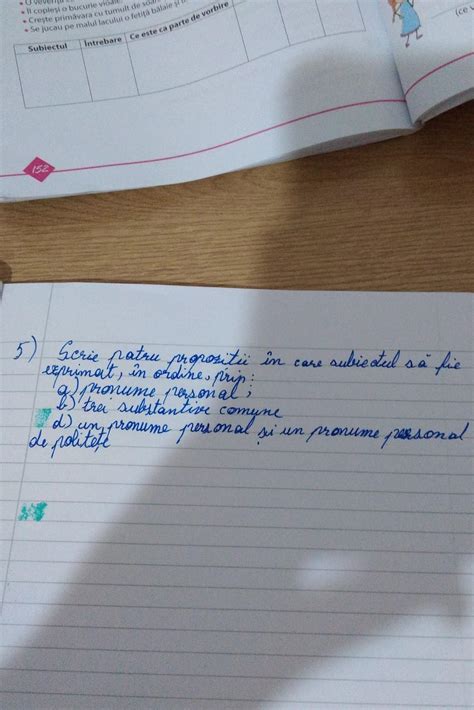 • Îl copleși o bucurie vioaie.
• Crește primăvara cu tumult de
• Se jucau pe malul lacului o fetiță bălaie și
Subiectul Întrebare Ce este ca parte de vorbire
(ce
152
5) Scrie patru propositii în care subiectul să fie
exprimat, în ordine, prip:
a) pronume personal;
b) trei substantive comune
d) un pronume personal și un pronume personal
de politețe